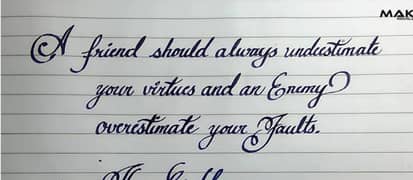 MAK
A friend should always undustimate
your virtues and an Enemy
overestimate your Faults.